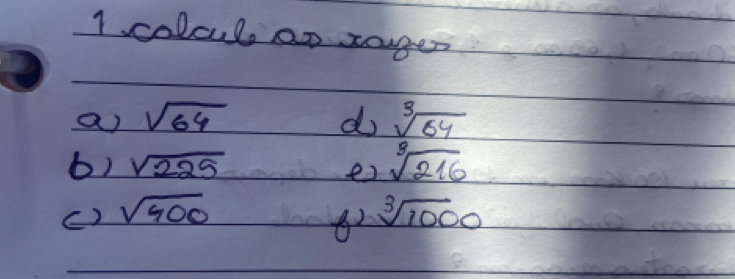 1 calcule as raizes
a) √64 d) ∛64
b) √225 e) ∛216
c) √400 f) ∛1000